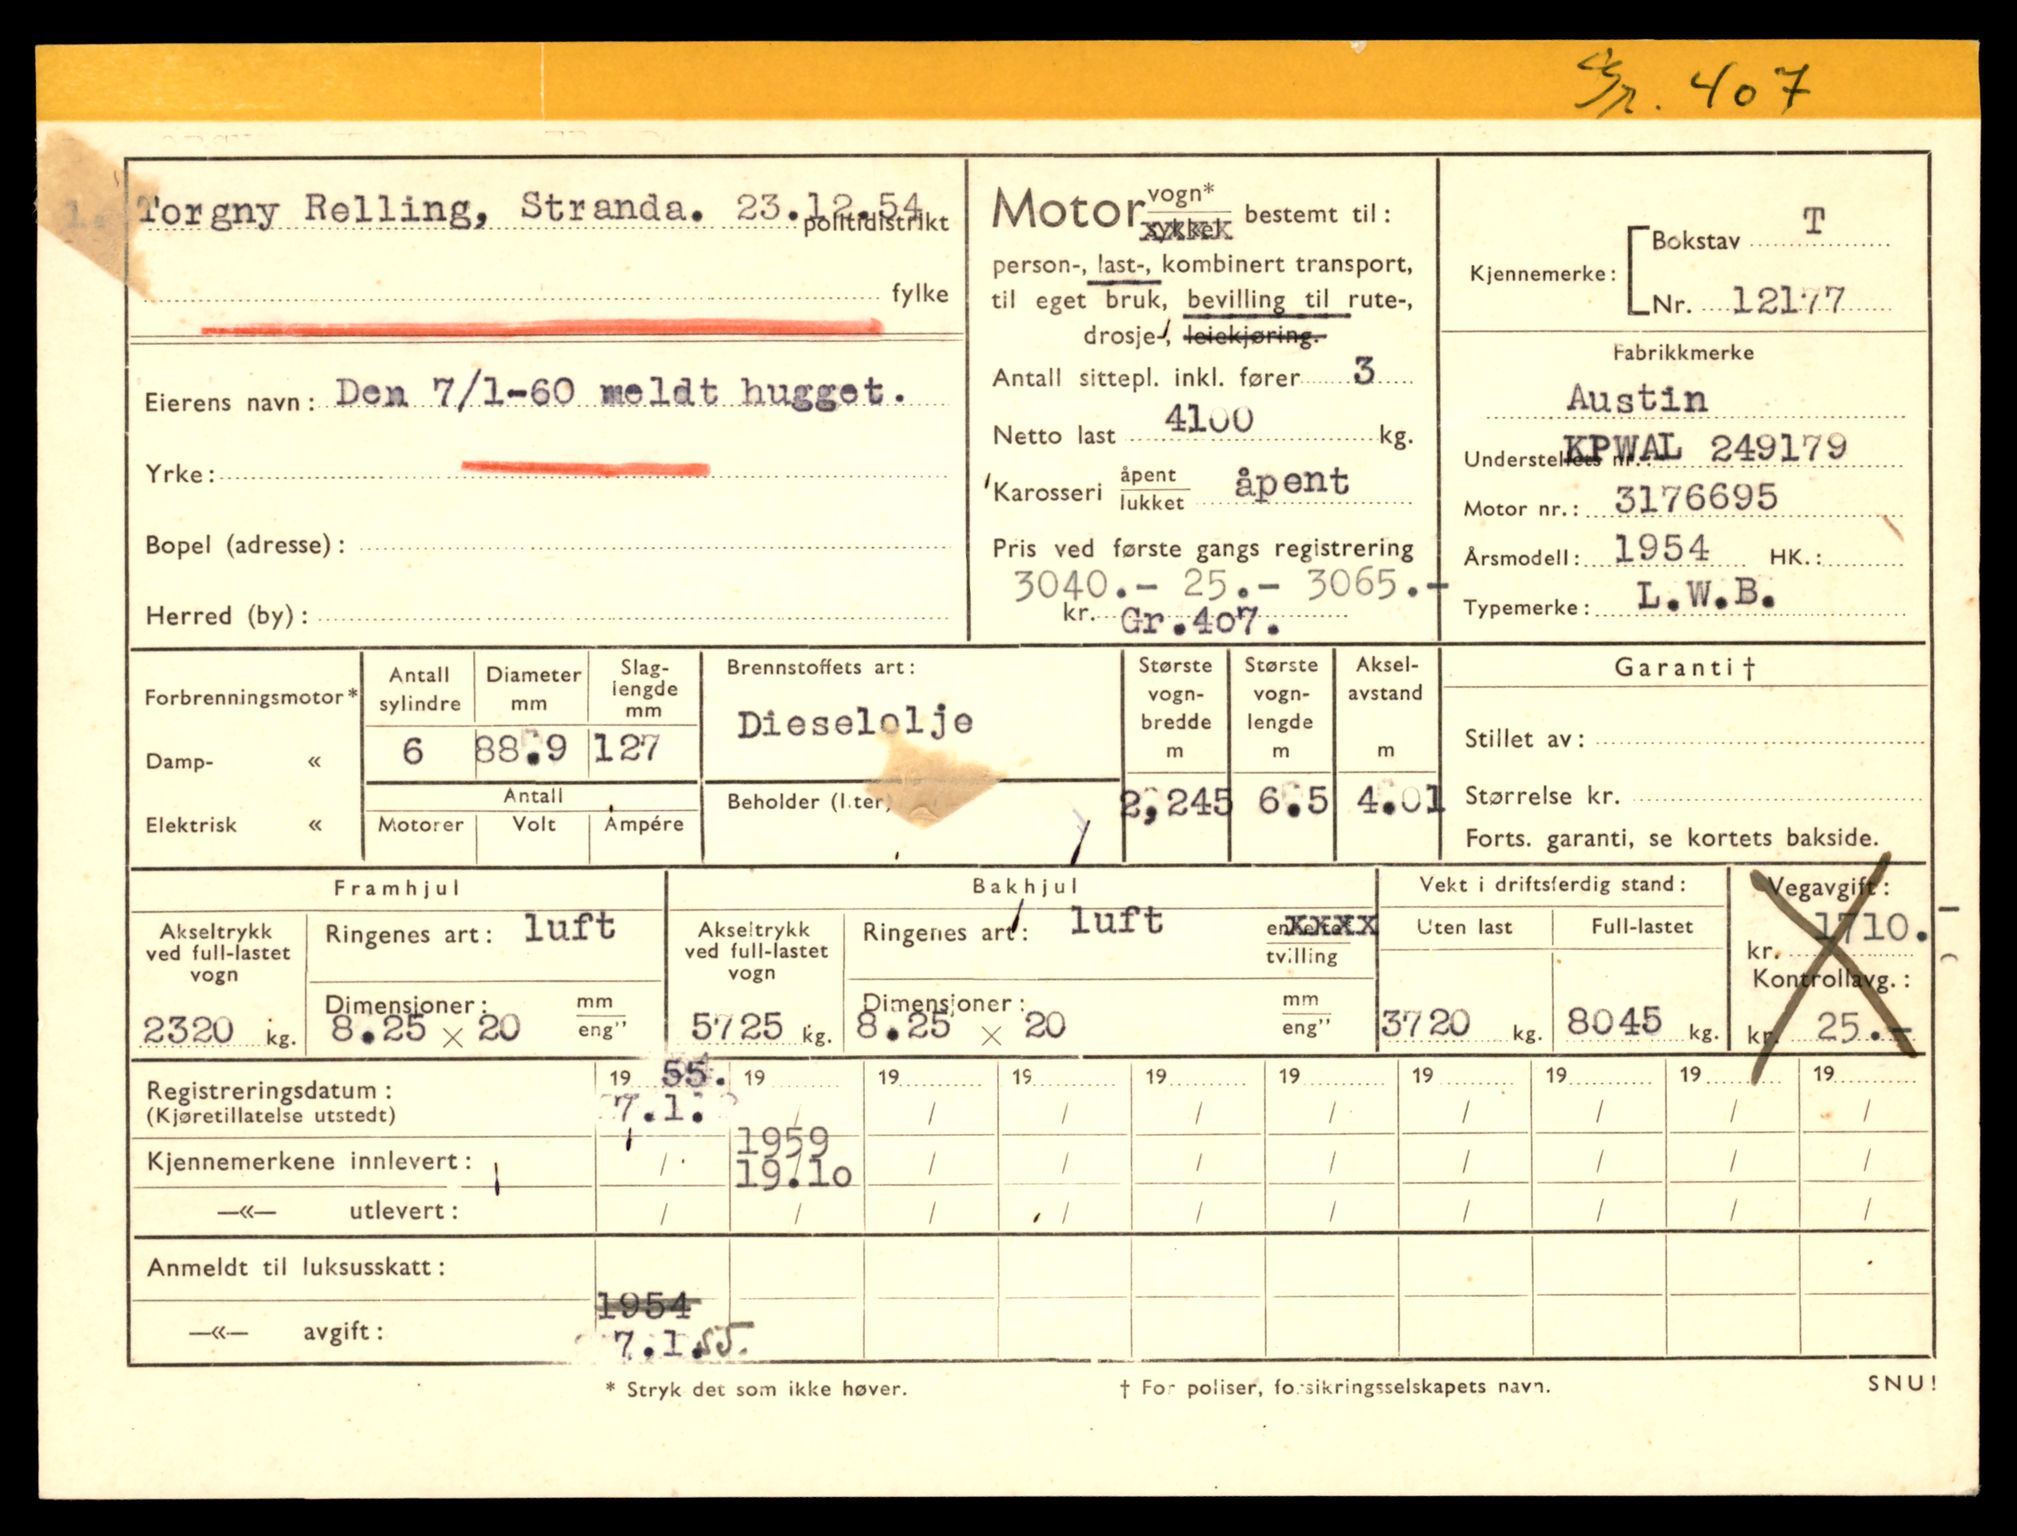 Gr. 407
1. Torgny Relling, Stranda. 23.12.54
politidistrikt
fylke
Eierens navn: Den 7/1-60 meldt hugget.
Yrke:
Bopel (adresse):
Herred (by):
Motor vogn* sykkel bestemt til:
person-, last-, kombinert transport,
til eget bruk, bevilling til rute-,
drosje-, leiekjøring.
Antall sittepl. inkl. fører 3
Netto last 4100 kg.
Karosseri åpent lukket åpent
Pris ved første gangs registrering
3040.- 25.- 3065.-
kr. Gr.407.
Kjennemerke:
Bokstav T
Nr. 12177
Fabrikkmerke
Austin
Understellets nr.: KPWAL 249179
Motor nr.: 3176695
Årsmodell: 1954 HK.:
Typemerke: L.W.B.
Forbrenningsmotor*
Damp- «
Elektrisk «
Antall sylindre
6
Diameter mm
88.9
Slag-
lengde
mm
127
Antall
Motorer Volt Ampére
Brennstoffets art:
Dieselolje
Beholder (liter)
Største
vogn-
bredde
m
2,245
Største
vogn-
lengde
m
6.5
Aksel-
avstand
m
4.01
Garanti †
Stillet av:
Størrelse kr.
Forts. garanti, se kortets bakside.
Framhjul
Akseltrykk
ved full-lastet
vogn
2320 kg.
Ringenes art: luft
Dimensjoner: mm
8.25 × 20 eng”
Bakhjul
Akseltrykk
ved full-lastet
vogn
5725 kg.
Ringenes art: luft enkelte
tvilling
Dimensjoner: mm
8.25 × 20 eng”
Vekt i driftsferdig stand:
Uten last Full-lastet
3720 kg. 8045 kg.
Vegavgift:
kr. 1710.-
Kontrollavg.:
kr. 25.-
Registreringsdatum: 19 55. 19 19 19 19 19 19 19 19 19
(Kjøretillatelse utstedt) 7.1. / / / / / / / / /
1959
Kjennemerkene innlevert: / 19.10 / / / / / / / /
—«— utlevert: / / / / / / / / / /
Anmeldt til luksusskatt:
1954
—«— avgift: 7.1.55.
* Stryk det som ikke høver.
† For poliser, forsikringsselskapets navn.
SNU!